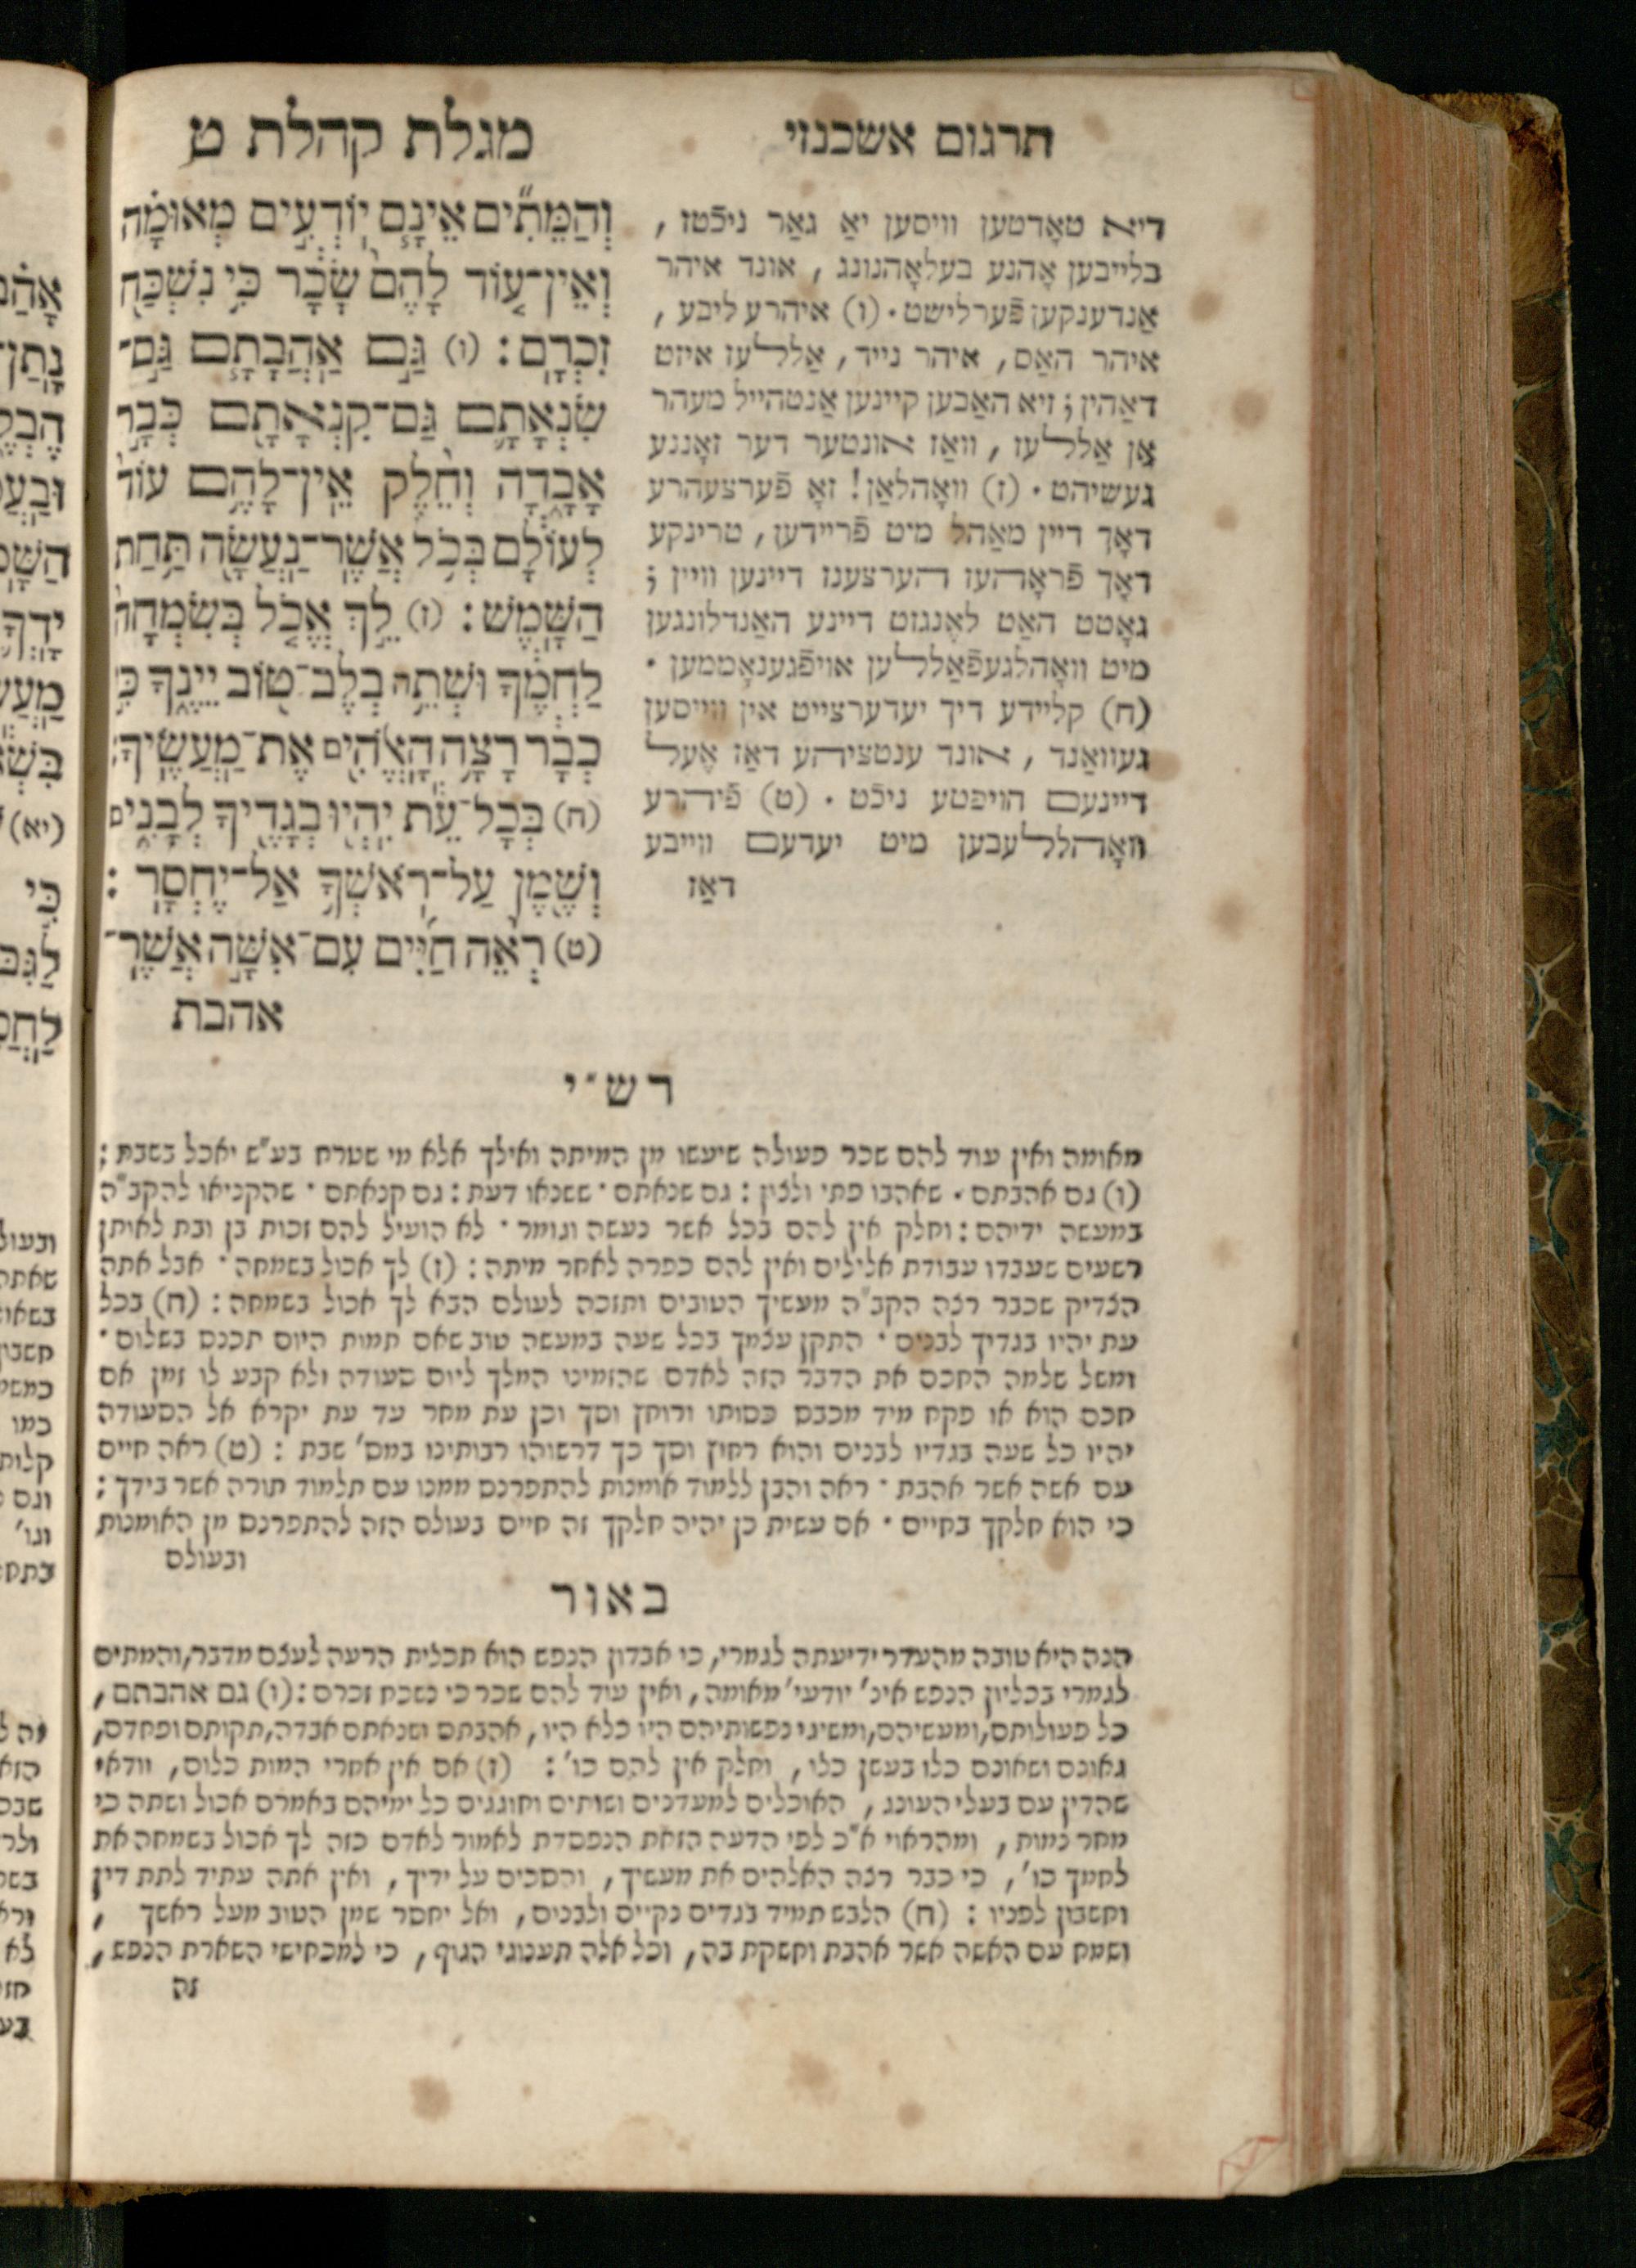 תרגום אשכנזי
דיא טאָדטען וויסען יאַ גאַר ניכֿטז ,
בלייבען אָהנע בעלאָהנונג , אונד איהר
אַנדענקען פֿערלישט · (ו) איהרע ליבע ,
איהר האַס , איהר נייד , אַללעז איזט
דאַהין ; זיא האַבען קיינען אַנטהייל מעהר
אָן אַללעז , וואַז אונטער דער זאָננע
געשיהט · (ז) וואָהלאַן ! זאָ פֿערצעהרע
דאָך דיין מאַהל מיט פֿריידען , טרינקע
דאָך פֿראָהעז הערצענז דיינען וויין ;
גאָטט האַט לאֶנגזט דיינע האַנדלונגען
מיט וואָהלגעפֿאַללען אויפֿגענאָממען ·
(ח) קליידע דיך יעדערצייט אין ווייסען
געוואַנד , אונד ענטציהע דאַז אֶעל
דיינעם הויפטע ניכֿט · (ט) פֿיהרע
וואָהללעבען מיט יעדעם ווייבע
דאַז
מגלת קהלת ט
וְהַמֵּתִ֞ים אֵינָ֧ם יֽוֹדְעִ֣ים מְא֗וּמָה
וְאֵֽין־ע֤וֹד לָהֶם֙ שָׂכָ֔ר כִּ֥י נִשְׁכַּ֖ח
זִכְרָֽם : (ו) גַּ֣ם אַֽהֲבָתָ֧ם גַּם־
שִׂנְאָתָ֛ם גַּם־קִנְאָתָ֖ם כְּבָ֣ר
אָבָ֑דָה וְחֵ֨לֶק אֵֽין־לָהֶ֥ם עוֹד֙
לְעוֹלָ֔ם בְּכֹ֥ל אֲשֶֽׁר־נַֽעֲשָׂ֖ה תַּ֥חַת
הַשָּֽׁמֶשׁ : (ז) לֵ֣ךְ אֱכֹ֤ל בְּשִׂמְחָה֙
לַחְמֶ֔ךָ וּֽשֲׁתֵ֥ה בְלֶב־ט֖וֹב יֵינֶ֑ךָ כִּ֣י
כְבָ֔ר רָצָ֥ה הָֽאֱלֹהִ֖ים אֶֽת־מַֽעֲשֶֽׂיךָ :
(ח) בְּכָל־עֵ֕ת יִֽהְי֥וּ בְגָדֶ֖יךָ לְבָנִ֑ים
וְשֶׁ֖מֶן עַל־רֹֽאשְׁךָ֥ אַל־יֶחְסָֽר :
(ט) רְאֵ֨ה חַיִּ֜ים עִם־אִשָּׁ֣ה אֲשֶׁר־
אהבת
רש״י
מאומה ואין עוד להם שכר פעולה שיעשו מן המיתה ואילך אלא מי שטרח בע״ש יאכל בשבת :
(ו) גם אהבתם · שאהבו פתי ולצין : גם שנאתם · ששנאו דעת : גם קנאתם · שהקניאו להקב״ה
במעשה ידיהם : וחלק אין להם בכל אשר נעשה וגומר · לא הועיל להם זכות בן ובת לאותן
רשעים שעבדו עבודת אלילים ואין להם כפרה לאחר מיתה : (ז) לך אכול בשמחה · אבל אתה
הצדיק שכבר רצה הקב״ה מעשיך הטובים ותזכה לעולם הבא לך אכול בשמחה : (ח) בכל
עת יהיו בגדיך לבנים · התקן עצמך בכל שעה במעשה טוב שאם תמות היום תכנס בשלום ·
ומשל שלמה החכם את הדבר הזה לאדם שהזמינו המלך ליום סעודה ולא קבע לו זמן אם
חכם הוא או פקח מיד מכבס כסותו ורוחץ וסך וכן עת מחר עד עת יקרא אל הסעודה
יהיו כל שעה בגדיו לבנים והוא רחוץ וסך כך דרשוהו רבותינו במס׳ שבת : (ט) ראה חיים
עם אשה אשר אהבת · ראה והבן ללמוד אומנות להתפרנס ממנו עם תלמוד תורה אשר בידך :
כי הוא חלקך בחיים · אם עשית כן יהיה חלקך זה חיים בעולם הזה להתפרנס מן האומנות
ובעולם
באור
הנה היא טובה מהעדר ידיעתה לגמרי, כי אבדון הנפש הוא תכלית הרעה לעצם מדבר, והמתים
לגמרי בכליון הנפש אינ׳ יודעי׳ מאומה, ואין עוד להם שכר כי נשכח זכרם : (ו) גם אהבתם,
כל פעולותם, ומעשיהם, ומשיגי נפשותיהם היו כלא היו, אהבתם ושנאתם אבדה, תקותם ופחדם,
גאונם ושאונם כלו בעשן כלו, וחלק אין להם כו׳ : (ז) אם אין אחרי המות כלום, וודאי
שהדין עם בעלי העונג, האוכלים למעדנים ושותים וחוגגים כל ימיהם באמרם אכול ושתה כי
מחר נמות, ומהראוי א״כ לפי הדעה הזאת הנפסדת לאמור לאדם כזה לך אכול בשמחה את
לחמך כו׳, כי כבר רצה האלהים את מעשיך, והסכים על ידיך, ואין אתה עתיד לתת דין
וחשבון לפניו : (ח) הלבש תמיד בגדים נקיים ולבנים, ואל יחסר שמן הטוב מעל ראשך ,
ושמח עם האשה אשר אהבת וחשקת בה, וכל אלה תענוגי הגוף, כי למכחישי השארת הנפש,
זה